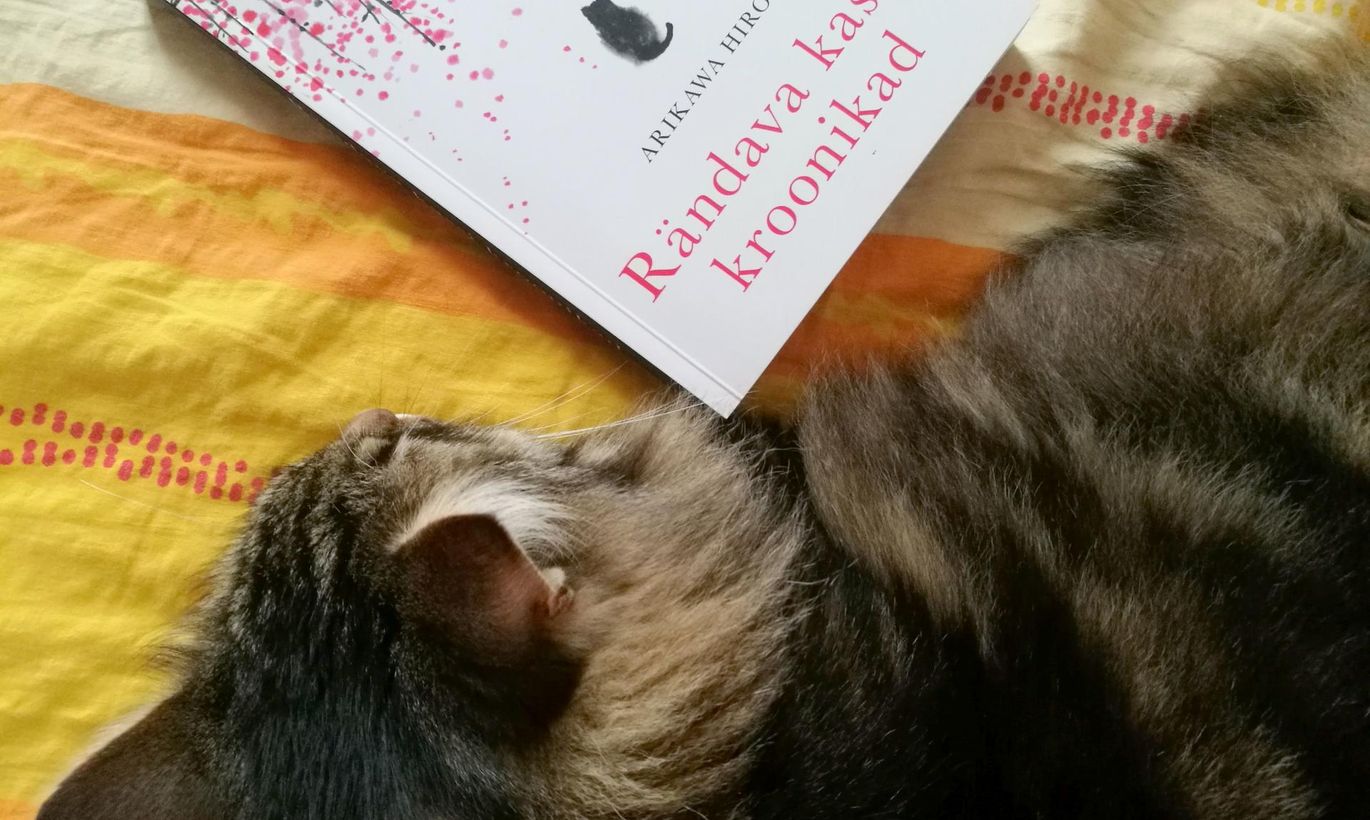 ARIKAWA HIRO
Rändava kas
kroonikad